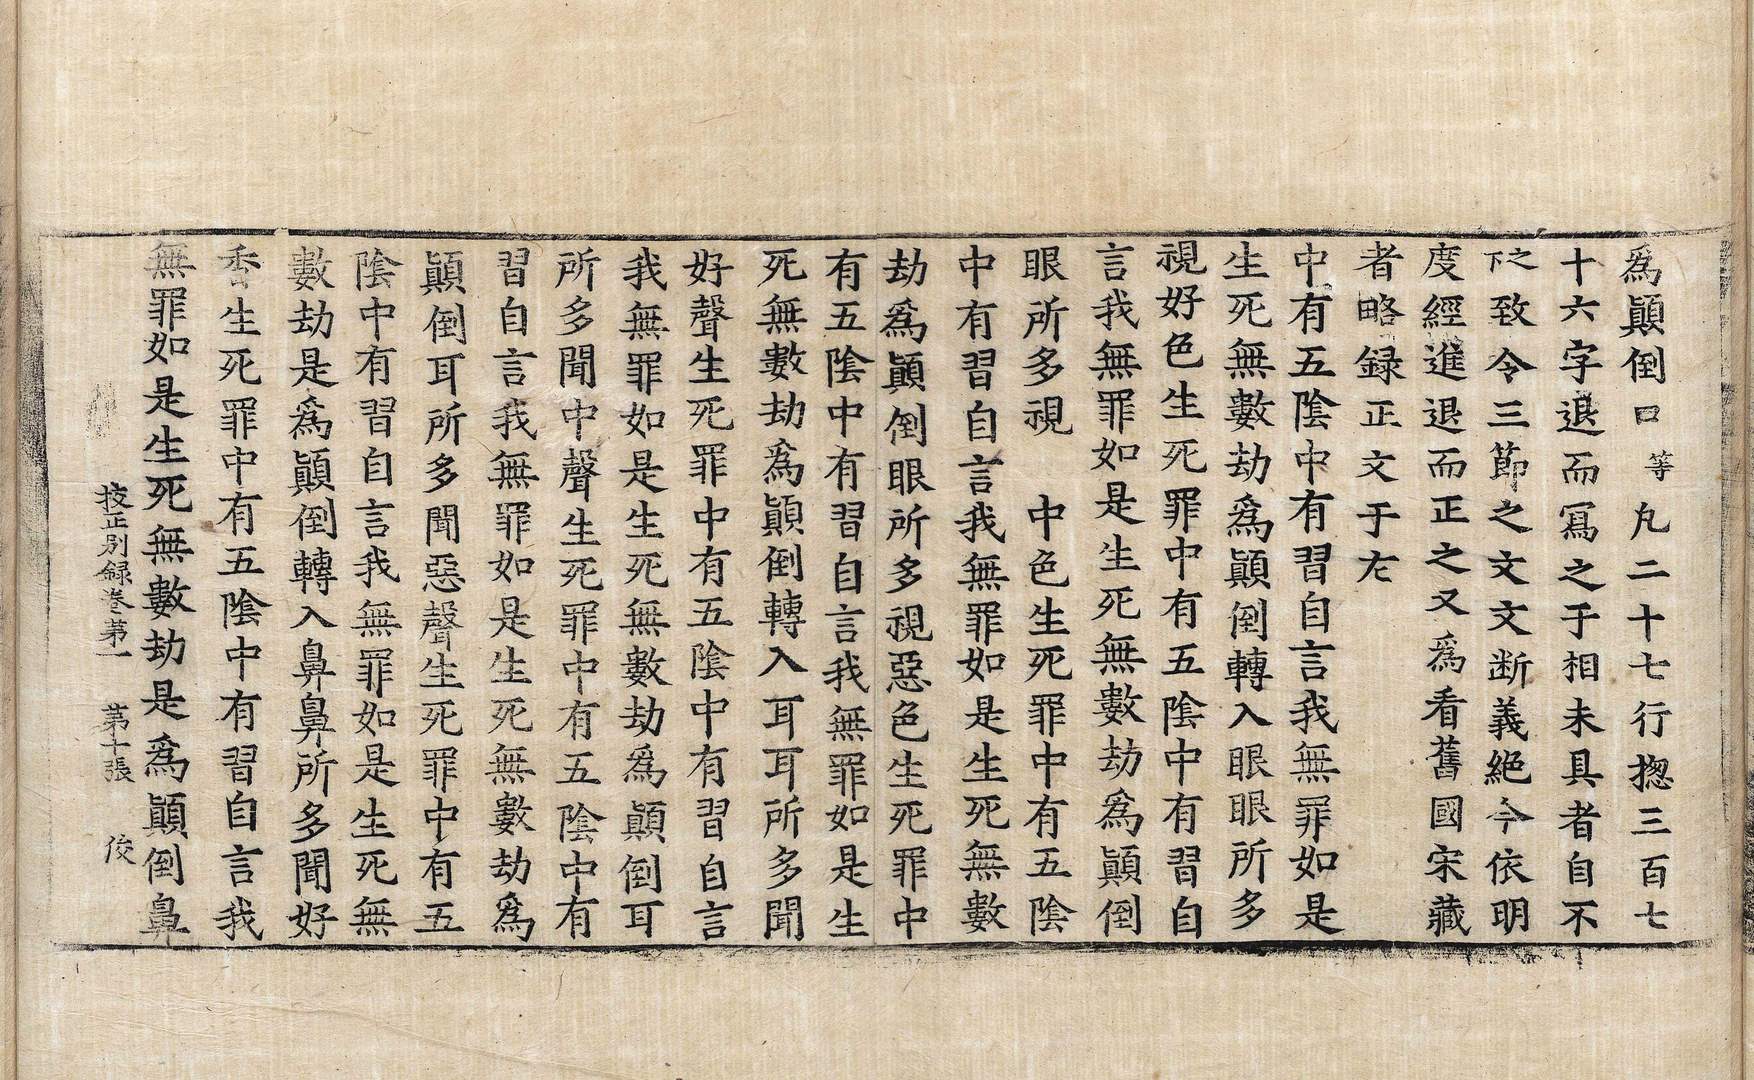 為顚倒口等凡二十七行揔三百七
十六字退而寫之于相未具者自不
之下致令三節之文文断義絕今依明
度經進退而正之又為看舊國宋藏
者略録正文于左
中有五隂中有習自言我無罪如是
生死無數劫為顚倒轉入眼眼所多
視好色生死罪中有五隂中有習自
言我無罪如是生死無數劫為顚倒
眼所多視　中色生死罪中有五隂
中有習自言我無罪如是生死無數
劫為顚倒眼所多視惡色生死罪中
有五隂中有習自言我無罪如是生
死無數劫為顚倒轉入耳耳所多聞
好聲生死罪中有五隂中有習自言
我無罪如是生死無數劫為顚倒耳
所多聞中聲生死罪中有五隂中有
習自言我無罪如是生死無數劫為
顚倒耳所多聞惡聲生死罪中有五
隂中有習自言我無罪如是生死無
數劫是為顚倒轉入鼻鼻所多聞好
香生死罪中有五隂中有習自言我
無罪如是生死無數劫是為顚倒鼻
挍正別録卷第一　第十張　俊